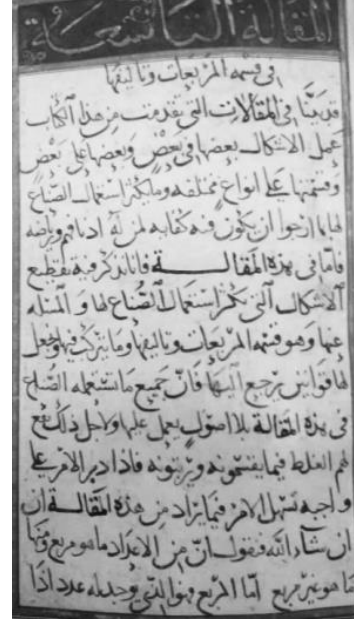 المقالة التاسعة
في قسمة المربعات وتاليفها
قد بينا في المقالات التي تقدمت من هذا الكتاب
عمل الاشكال بعضها في بعض وبعضها على بعض
وقسمتها على انواع مختلفه وما يكثر استعمال الصناع
لها ما ارجوا ان يكون فيه كفايه لمن له
فاما في هذه المقالـــة فانا نذكر فيه تقطيع
الاشكال التي يكثر استعمال الصناع لها و المسئله
عنها وهو قسمه المربعات وتاليفها وما يتركب فيها ونجعل
لها قوانين يرجع اليها فان جميع ما تستعمله الصناع
في هذه المقالة بلا اصول يعمل عليها ولاجل ذلك يقع
لهم الغلط فيما يقسمونه ويربعونه فاذا دبر الامر على
واجبه تسهل الامر فيما يراد من هذه المقالـــة ان
ان شاء الله فنقول ان من الاعداد ما هو مربع ومنها
ما هو غير مربع اما المربع فهو الذي يوجد له عدد اذا